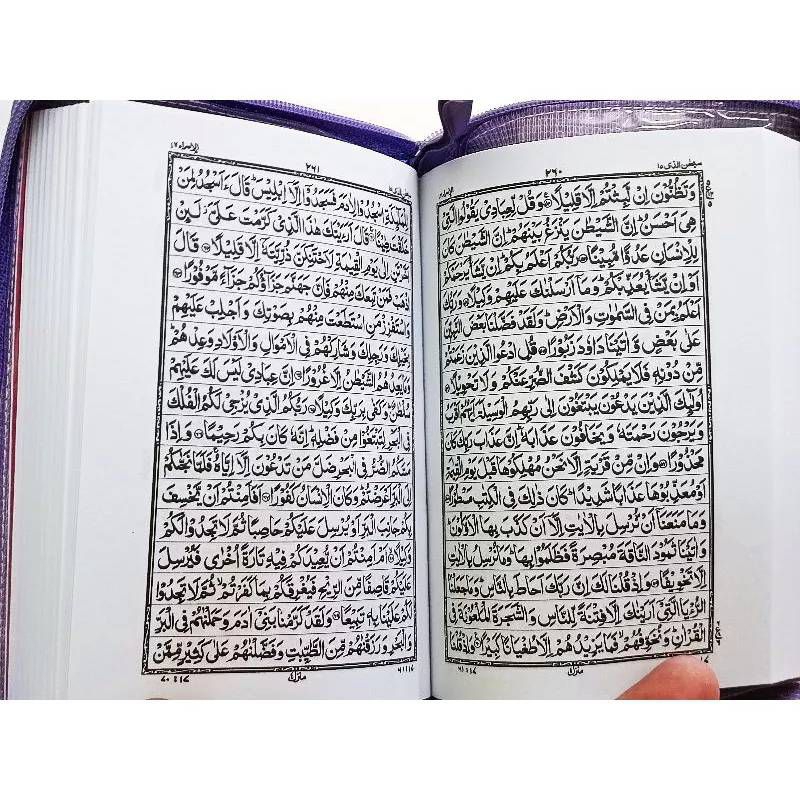 سبحٰن الذی ۱۵
۲۶۰
وَتَظُنُّوْنَ اِنْ لَّبِثْتُمْ اِلَّا قَلِيْلًا۝ وَقُلْ لِّعِبَادِيْ يَقُوْلُوا الَّتِيْ
هِيَ اَحْسَنُ ؕ اِنَّ الشَّيْطٰنَ يَنْزَغُ بَيْنَهُمْ ؕ اِنَّ الشَّيْطٰنَ كَانَ
لِلْاِنْسَانِ عَدُوًّا مُّبِيْنًا۝ رَبُّكُمْ اَعْلَمُ بِكُمْ ؕ اِنْ يَّشَاْ يَرْحَمْكُمْ
اَوْ اِنْ يَّشَاْ يُعَذِّبْكُمْ ؕ وَمَاۤ اَرْسَلْنٰكَ عَلَيْهِمْ وَكِيْلًا۝ وَرَبُّكَ
اَعْلَمُ بِمَنْ فِي السَّمٰوٰتِ وَالْاَرْضِ ؕ وَلَقَدْ فَضَّلْنَا بَعْضَ النَّبِيّٖنَ
عَلٰى بَعْضٍ وَّاٰتَيْنَا دَاوٗدَ زَبُوْرًا۝ قُلِ ادْعُوا الَّذِيْنَ زَعَمْتُمْ
مِّنْ دُوْنِهٖ فَلَا يَمْلِكُوْنَ كَشْفَ الضُّرِّ عَنْكُمْ وَلَا تَحْوِيْلًا۝
اُولٰٓئِكَ الَّذِيْنَ يَدْعُوْنَ يَبْتَغُوْنَ اِلٰى رَبِّهِمُ الْوَسِيْلَةَ اَيُّهُمْ اَقْرَبُ
وَيَرْجُوْنَ رَحْمَتَهٗ وَيَخَافُوْنَ عَذَابَهٗ ؕ اِنَّ عَذَابَ رَبِّكَ كَانَ
مَحْذُوْرًا۝ وَاِنْ مِّنْ قَرْيَةٍ اِلَّا نَحْنُ مُهْلِكُوْهَا قَبْلَ يَوْمِ الْقِيٰمَةِ
اَوْ مُعَذِّبُوْهَا عَذَابًا شَدِيْدًا ؕ كَانَ ذٰلِكَ فِي الْكِتٰبِ مَسْطُوْرًا۝
وَمَا مَنَعَنَاۤ اَنْ نُّرْسِلَ بِالْاٰيٰتِ اِلَّاۤ اَنْ كَذَّبَ بِهَا الْاَوَّلُوْنَ ؕ
وَاٰتَيْنَا ثَمُوْدَ النَّاقَةَ مُبْصِرَةً فَظَلَمُوْا بِهَا ؕ وَمَا نُرْسِلُ بِالْاٰيٰتِ
اِلَّا تَخْوِيْفًا۝ وَاِذْ قُلْنَا لَكَ اِنَّ رَبَّكَ اَحَاطَ بِالنَّاسِ ؕ وَمَا جَعَلْنَا
الرُّءْيَا الَّتِيْۤ اَرَيْنٰكَ اِلَّا فِتْنَةً لِّلنَّاسِ وَالشَّجَرَةَ الْمَلْعُوْنَةَ فِي
الْقُرْاٰنِ ؕ وَنُخَوِّفُهُمْ ۙ فَمَا يَزِيْدُهُمْ اِلَّا طُغْيَانًا كَبِيْرًا۝ وَاِذْ قُلْنَا
منزل
۶۱ : ۱۷
۲۶۱
الاسراء ۱۷
لِلْمَلٰٓئِكَةِ اسْجُدُوْا لِاٰدَمَ فَسَجَدُوْۤا اِلَّاۤ اِبْلِيْسَ ؕ قَالَ ءَاَسْجُدُ لِمَنْ
خَلَقْتَ طِيْنًا۝ قَالَ اَرَءَيْتَكَ هٰذَا الَّذِيْ كَرَّمْتَ عَلَيَّ ؗ لَئِنْ
اَخَّرْتَنِ اِلٰى يَوْمِ الْقِيٰمَةِ لَاَحْتَنِكَنَّ ذُرِّيَّتَهٗۤ اِلَّا قَلِيْلًا۝ قَالَ
اذْهَبْ فَمَنْ تَبِعَكَ مِنْهُمْ فَاِنَّ جَهَنَّمَ جَزَآؤُكُمْ جَزَآءً مَّوْفُوْرًا۝
وَاسْتَفْزِزْ مَنِ اسْتَطَعْتَ مِنْهُمْ بِصَوْتِكَ وَاَجْلِبْ عَلَيْهِمْ
بِخَيْلِكَ وَرَجِلِكَ وَشَارِكْهُمْ فِي الْاَمْوَالِ وَالْاَوْلَادِ وَعِدْهُمْ ؕ
وَمَا يَعِدُهُمُ الشَّيْطٰنُ اِلَّا غُرُوْرًا۝ اِنَّ عِبَادِيْ لَيْسَ لَكَ عَلَيْهِمْ
سُلْطٰنٌ ؕ وَكَفٰى بِرَبِّكَ وَكِيْلًا۝ رَبُّكُمُ الَّذِيْ يُزْجِيْ لَكُمُ الْفُلْكَ
فِي الْبَحْرِ لِتَبْتَغُوْا مِنْ فَضْلِهٖ ؕ اِنَّهٗ كَانَ بِكُمْ رَحِيْمًا۝ وَاِذَا
مَسَّكُمُ الضُّرُّ فِي الْبَحْرِ ضَلَّ مَنْ تَدْعُوْنَ اِلَّاۤ اِيَّاهُ ۚ فَلَمَّا نَجّٰىكُمْ
اِلَى الْبَرِّ اَعْرَضْتُمْ ؕ وَكَانَ الْاِنْسَانُ كَفُوْرًا۝ اَفَاَمِنْتُمْ اَنْ يَّخْسِفَ
بِكُمْ جَانِبَ الْبَرِّ اَوْ يُرْسِلَ عَلَيْكُمْ حَاصِبًا ثُمَّ لَا تَجِدُوْا لَكُمْ
وَكِيْلًا۝ اَمْ اَمِنْتُمْ اَنْ يُّعِيْدَكُمْ فِيْهِ تَارَةً اُخْرٰى فَيُرْسِلَ
عَلَيْكُمْ قَاصِفًا مِّنَ الرِّيْحِ فَيُغْرِقَكُمْ بِمَا كَفَرْتُمْ ۙ ثُمَّ لَا تَجِدُوْا
لَكُمْ عَلَيْنَا بِهٖ تَبِيْعًا۝ وَلَقَدْ كَرَّمْنَا بَنِيْۤ اٰدَمَ وَحَمَلْنٰهُمْ فِي الْبَرِّ
وَالْبَحْرِ وَرَزَقْنٰهُمْ مِّنَ الطَّيِّبٰتِ وَفَضَّلْنٰهُمْ عَلٰى كَثِيْرٍ مِّمَّنْ
۶۱ : ۱۷
منزل
۷۰ : ۱۷